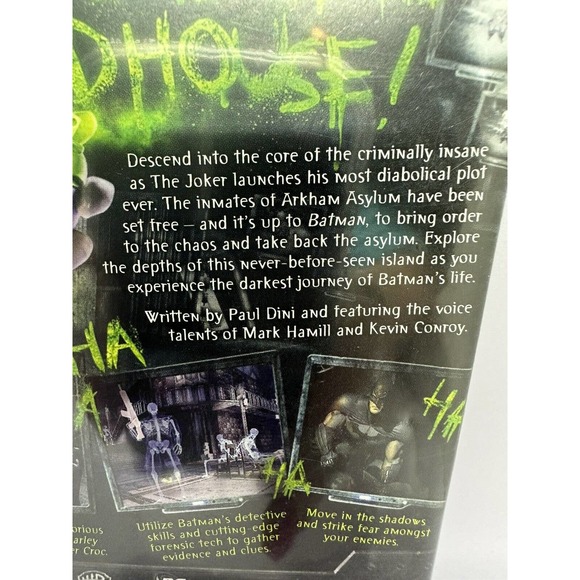 DHOUSE!
Descend into the core of the criminally insane
as The Joker launches his most diabolical plot
ever. The inmates of Arkham Asylum have been
set free – and it's up to Batman, to bring order
to the chaos and take back the asylum. Explore
the depths of this never-before-seen island as you
experience the darkest journey of Batman's life.
Written by Paul Dini and featuring the voice
talents of Mark Hamill and Kevin Conroy.
HA
HA
HA
Utilize Batman's detective
skills and cutting edge
forensic tech to gather
evidence and clues.
Move in the shadows
and strike fear amongst
your enemies.
orious
arley
er Croc.